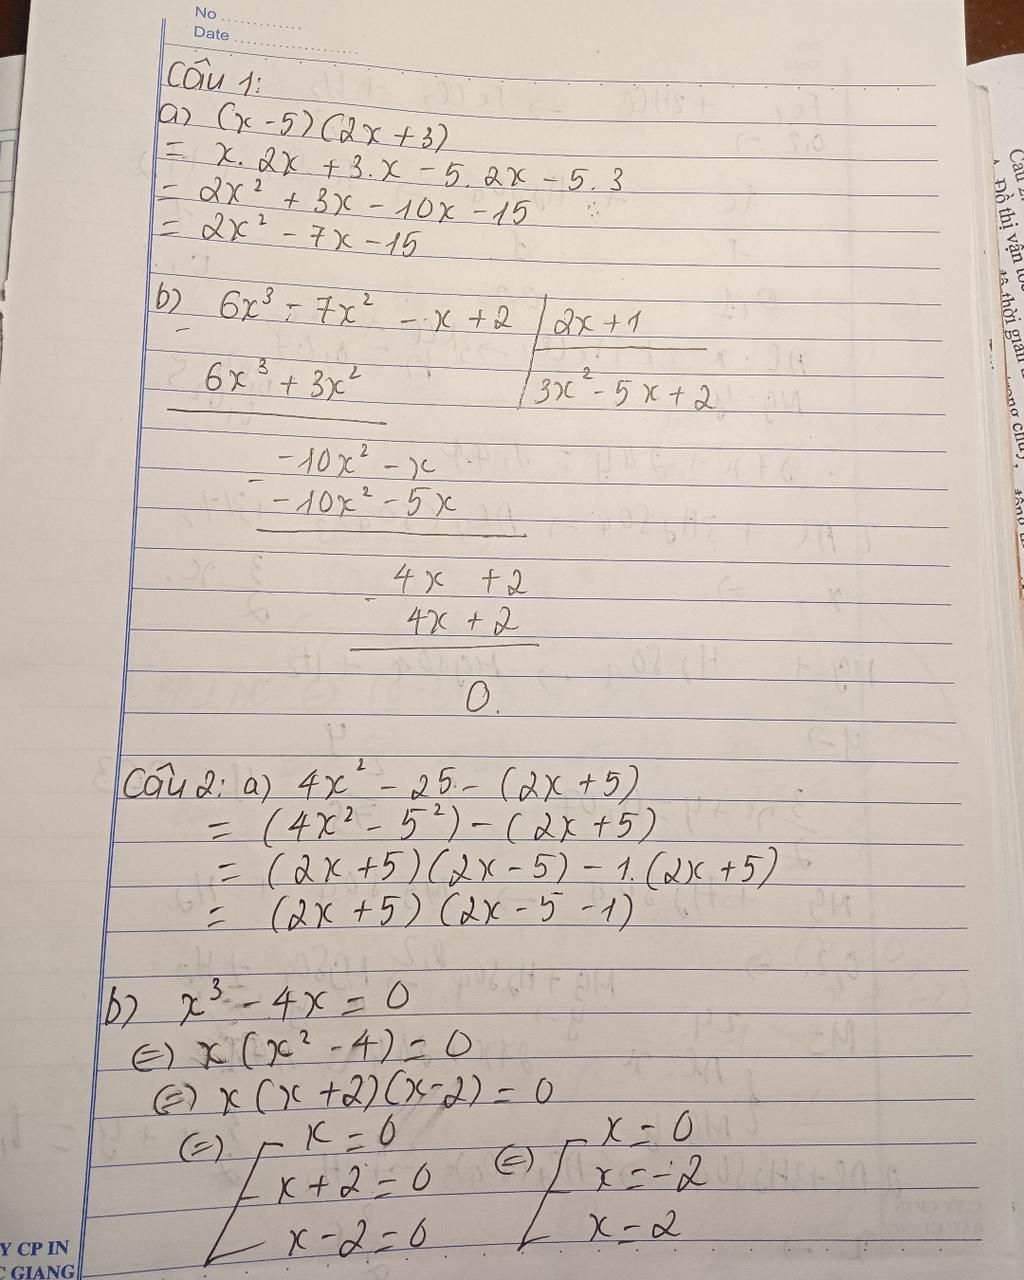 No ..............
Date ......................
Câu 1:
a) (x - 5) (2x + 3)
= x. 2x + 3. x - 5. 2x - 5. 3
= 2x² + 3x - 10x - 15
= 2x² - 7x - 15
b) 6x³ - 7x² - x + 2 | 2x + 1
6x³ + 3x² | 3x² - 5x + 2
-10x² - x
- -10x² - 5x
4x + 2
- 4x + 2
0.
Câu 2: a) 4x² - 25 - (2x + 5)
= (4x² - 5²) - (2x + 5)
= (2x + 5) (2x - 5) - 1. (2x + 5)
= (2x + 5) (2x - 5 - 1)
b) x³ - 4x = 0
(=) x (x² - 4) = 0
(=) x (x + 2) (x - 2) = 0
(=) [ x = 0 (=) [ x = 0
x + 2 = 0 x = -2
x - 2 = 0 x = 2
Y CP IN
C GIANG
Câu 2.
Đồ thị vận tốc
thời gian
trong chuy